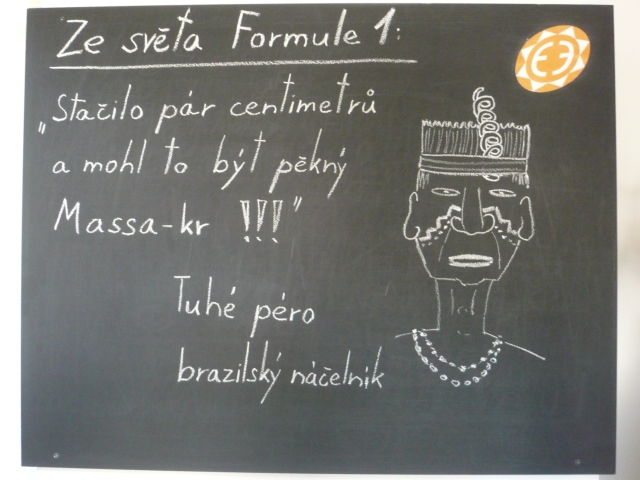 Ze světa Formule 1:
„Stačilo pár centimetrů
a mohl to být pěkný
Massa-kr !!!"
Tuhé péro
brazilský náčelnik